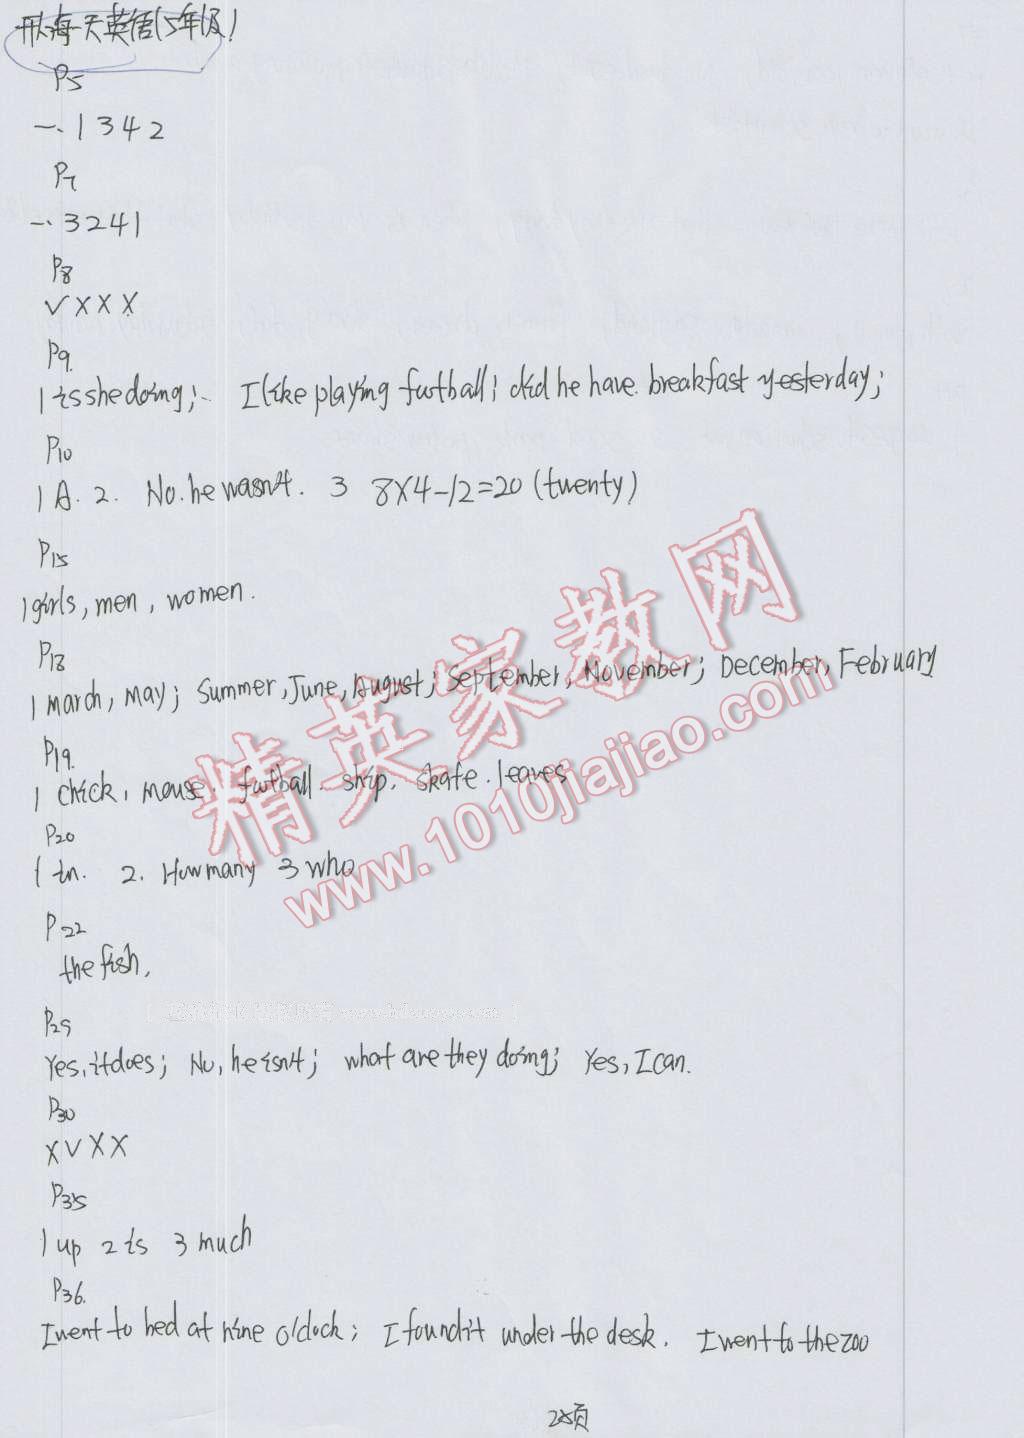 天英语(5年级)
P5
一.1342
P7
一.3241
P8
√XXX
P9.
1 is she doing; I like playing football; did he have. breakfast yesterday;
P10
1 A. 2. No. he wasn't. 3 8X4-12=20 (twenty)
P15
1 girls, men, women.
P18
1 march, may; Summer, June, August; September, November; December, February
P19.
1 chick, mouse, football. ship. skate. leaves
P20
1 in. 2. How many 3 who
P22
the fish,
P25
Yes, it does; No, he isn't; what are they doing; Yes, I can.
P30
X√XX
P35
1 up 2 is 3 much
P36.
I went to bed at nine o'clock; I found it under the desk. I went to the zoo
精英家教网
www.1010jiajiao.com